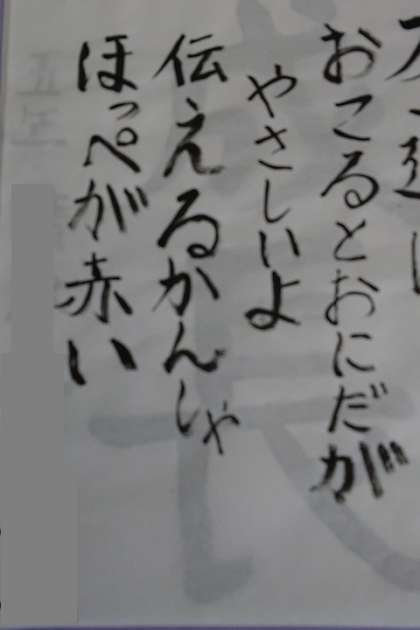 おこるとおにだが
やさしいよ
伝えるかんしゃ
ほっぺが赤い